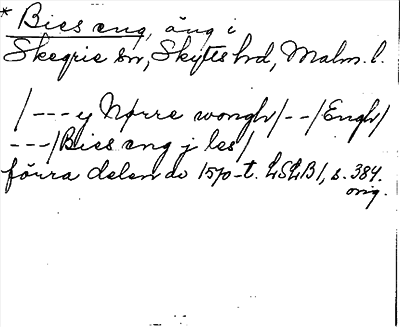 * Bies eng, äng i
Skegrie sn, Skytts hd, Malm. l.
/--- y Nørre wongh/--/Engh/
---/Bies eng j les/
förra delen av 1570-t. LSLB 1, s. 384.
orig.